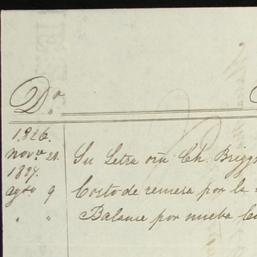 Do
1826.
Nov.e 21. Su Letra orn Ch. Briggs
1827.
Agto 9 Costo de remesa por la
" " Balance por nueba